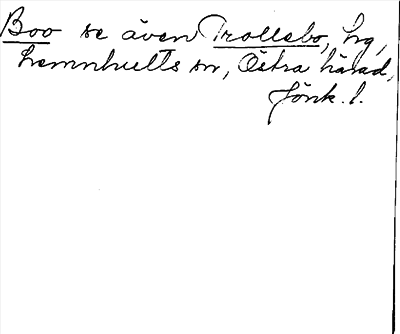 Boo se även Trollebo, hg,
Lemnhults sn, Östra härad,
Jönk. l.